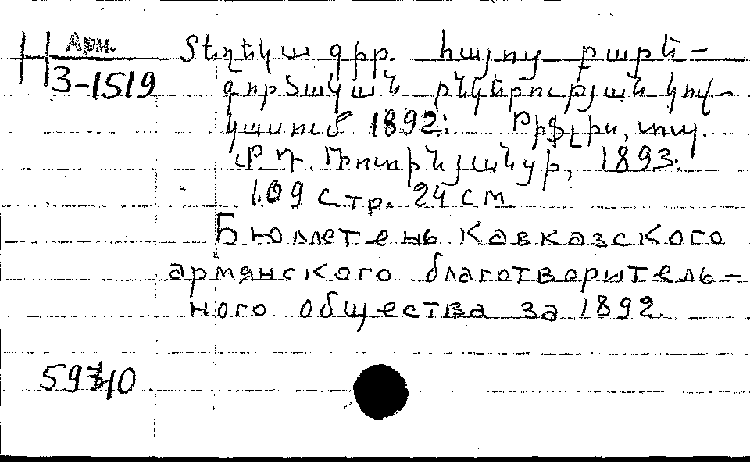 Арм.
Н 3-1519
Տեղեկա գիր. հայոց բարե-
գործական ընկերության կով-
կասում 1892։ Թիֆլիս, տպ.
Մ. Դ. Ռոտինյանցի, 1893.
109 стр. 24 см
Бюллетень Кавказского
армянского благотворитель-
ного общества за 1892.